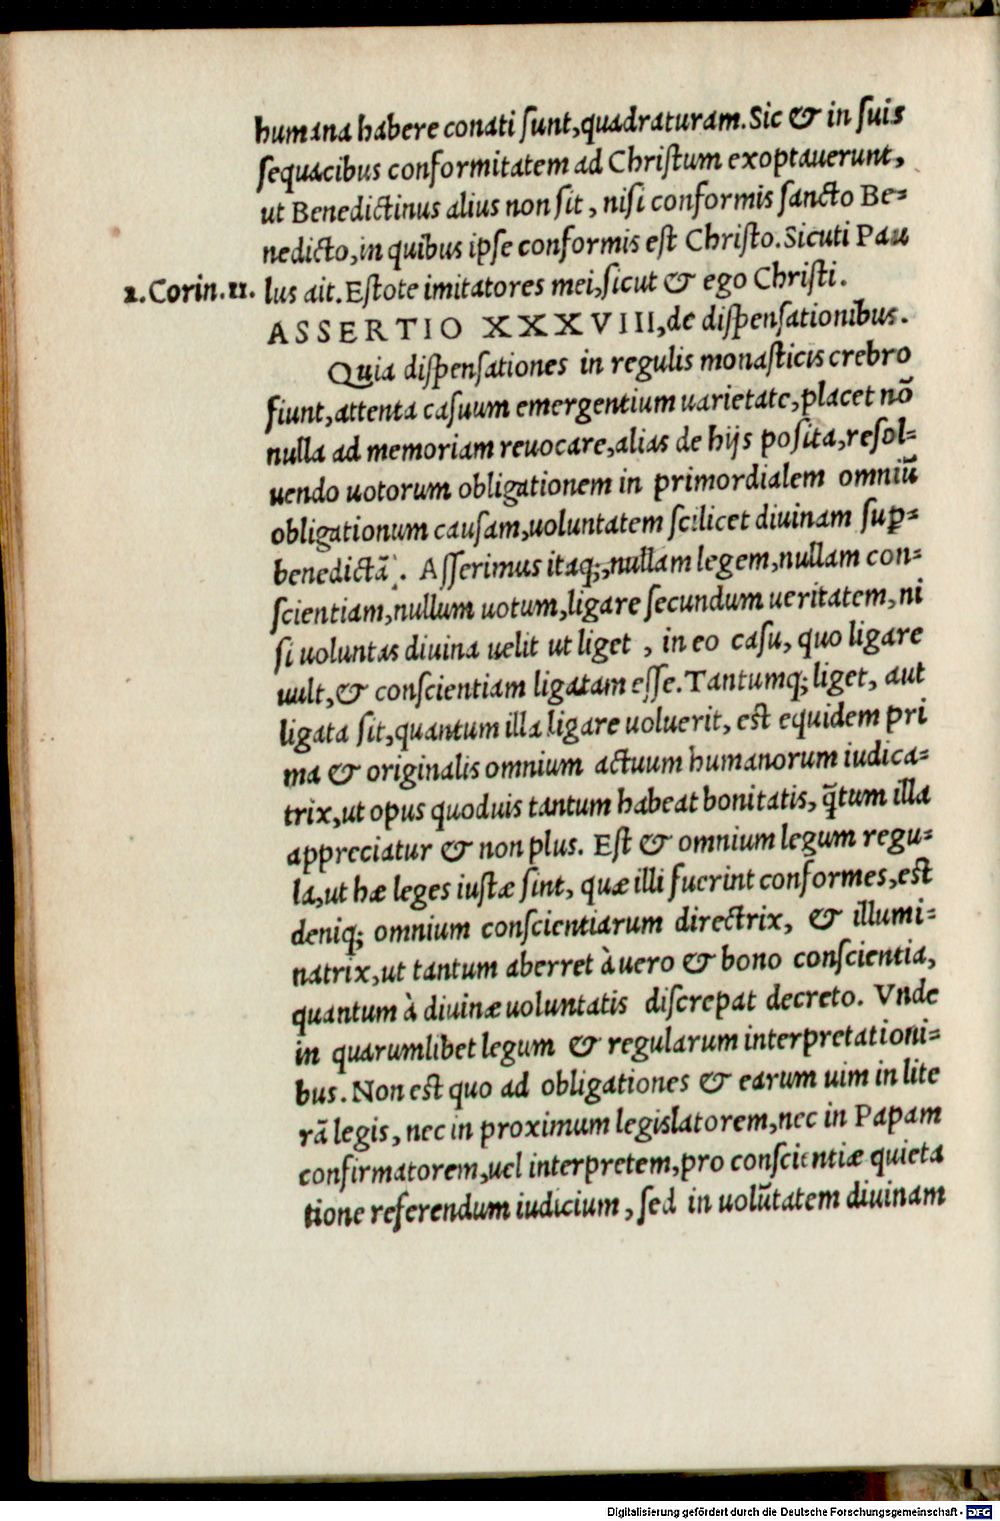 humana habere conati sunt,quadraturam.Sic & in suis
sequacibus conformitatem ad Christum exoptauerunt,
ut Benedictinus alius non sit, nisi conformis sancto Be=
nedicto,in quibus ipse conformis est Christo.Sicuti Pau
1.Corin.11. lus ait.Estote imitatores mei,sicut & ego Christi.
ASSERTIO XXXVIII,de dispensationibus.
Quia dispensationes in regulis monasticis crebro
fiunt,attenta casuum emergentium uarietate,placet nõ
nulla ad memoriam reuocare,alias de hijs posita,resol=
uendo uotorum obligationem in primordialem omniũ
obligationum causam,uoluntatem scilicet diuinam sup̱=
benedictã. Asserimus itaq;,nullam legem,nullam con=
scientiam,nullum uotum,ligare secundum ueritatem,ni
si uoluntas diuina uelit ut liget, in eo casu, quo ligare
uult,& conscientiam ligatam esse.Tantumq; liget, aut
ligata sit,quantum illa ligare uoluerit, est equidem pri
ma & originalis omnium actuum humanorum iudica=
trix,ut opus quoduis tantum habeat bonitatis, q̃tum illa
appreciatur & non plus. Est & omnium legum regu=
la,ut hæ leges iustæ sint, quæ illi fuerint conformes,est
deniq; omnium conscientiarum directrix, & illumi=
natrix,ut tantum aberret à uero & bono conscientia,
quantum à diuinæ uoluntatis discrepat decreto. Vnde
in quarumlibet legum & regularum interpretationi=
bus. Non est quo ad obligationes & earum uim in lite
rã legis, nec in proximum legislatorem,nec in Papam
confirmatorem,uel interpretem,pro conscientiæ quieta
tione referendum iudicium, sed in uolũtatem diuinam
Digitalisierung gefördert durch die Deutsche Forschungsgemeinschaft - DFG